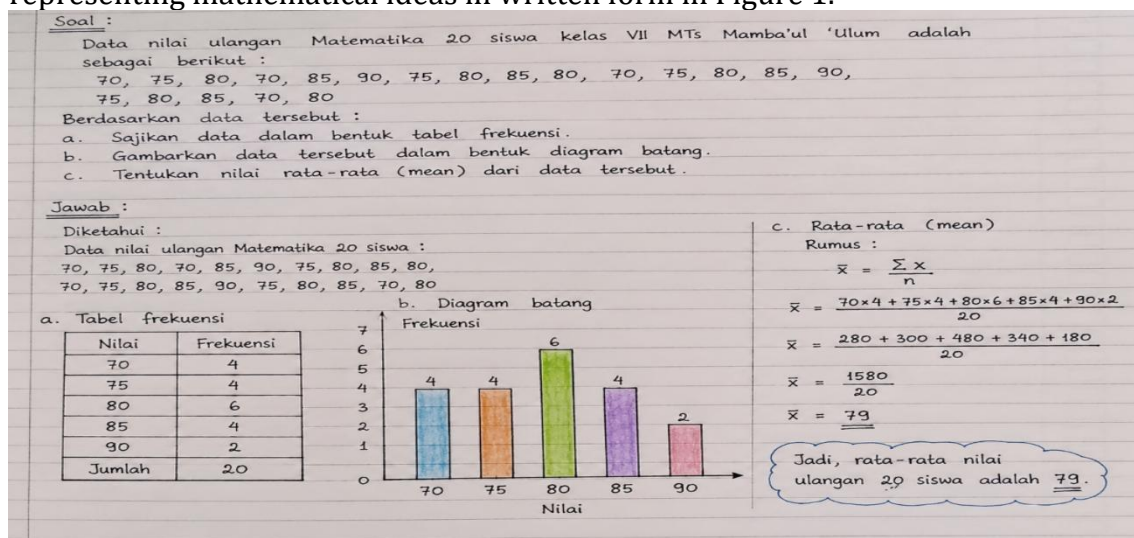 representing mathematical ideas in written form in Figure 1.
Soal :
Data nilai ulangan Matematika 20 siswa kelas VII MTs Mamba'ul 'Ulum adalah
sebagai berikut :
70, 75, 80, 70, 85, 90, 75, 80, 85, 80, 70, 75, 80, 85, 90,
75, 80, 85, 70, 80
Berdasarkan data tersebut :
a. Sajikan data dalam bentuk tabel frekuensi.
b. Gambarkan data tersebut dalam bentuk diagram batang.
c. Tentukan nilai rata-rata (mean) dari data tersebut.
Jawab :
Diketahui :
Data nilai ulangan Matematika 20 siswa :
70, 75, 80, 70, 85, 90, 75, 80, 85, 80,
70, 75, 80, 85, 90, 75, 80, 85, 70, 80
a. Tabel frekuensi
Nilai Frekuensi
70 4
75 4
80 6
85 4
90 2
Jumlah 20
b. Diagram batang
Frekuensi
7
6
5
4
3
2
1
0
4 4 6 4 2
70 75 80 85 90
Nilai
c. Rata-rata (mean)
Rumus :
x̄ = Σx / n
x̄ = 70×4 + 75×4 + 80×6 + 85×4 + 90×2 / 20
x̄ = 280 + 300 + 480 + 340 + 180 / 20
x̄ = 1580 / 20
x̄ = 79
Jadi, rata-rata nilai
ulangan 20 siswa adalah 79.